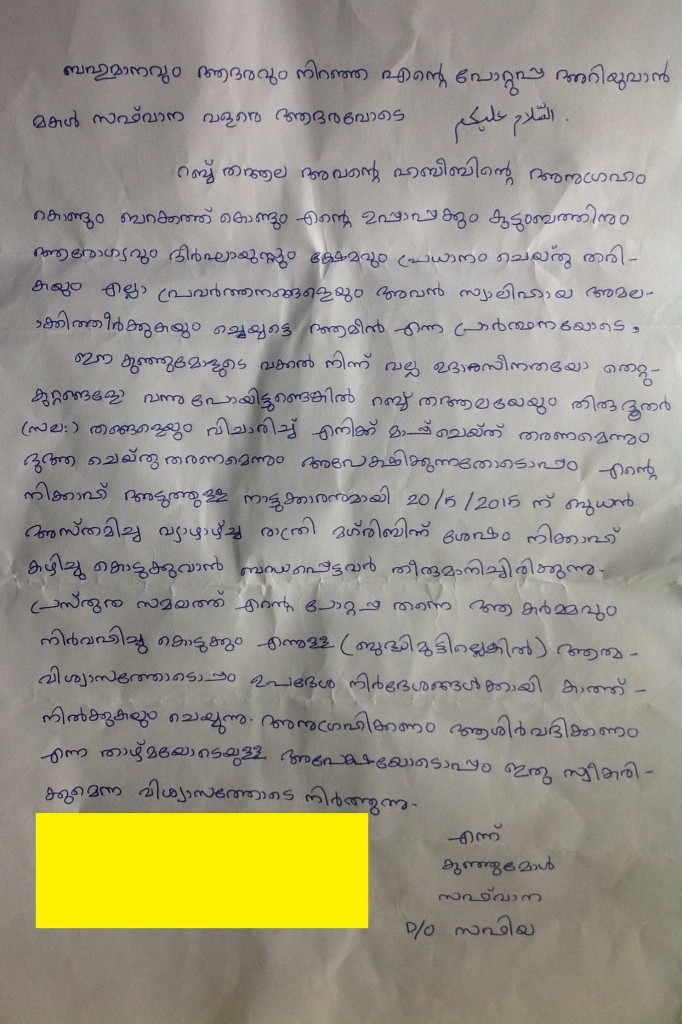 ബഹുമാനവും ആദരവും നിറഞ്ഞ എന്റെ പോറ്റുപ്പ അറിയുവാൻ
മകൾ സഫ്വാന വളരെ ആദരവോടെ السّلام عليكم .
റബ്ബ് തആല അവന്റെ ഹബീബിന്റെ അനുഗ്രഹം
കൊണ്ടും ബറക്കത്ത് കൊണ്ടും എന്റെ ഉപ്പാപ്പക്കും കുടുംബത്തിനും
ആരോഗ്യവും ദീർഘായുസ്സും ക്ഷേമവും പ്രധാനം ചെയ്തു തരി-
കയും എല്ലാ പ്രവർത്തനങ്ങളെയും അവൻ സ്വാലിഹായ അമല-
ാക്കിത്തീർക്കുകയും ചെയ്യട്ടെ ആമീൻ എന്ന പ്രാർത്ഥനയോടെ,
ഈ കുഞ്ഞുമോളുടെ വക്കൽ നിന്ന് വല്ല ഉദാസീനതയോ തെറ്റു-
കുറ്റങ്ങളോ വന്നു പോയിട്ടുണ്ടെങ്കിൽ റബ്ബ് തആലയേയും തിരു ദൂതർ
(സല:) തങ്ങളെയും വിചാരിച്ച് എനിക്ക് മാപ്പ് ചെയ്ത് തരണമെന്നും
ദുആ ചെയ്തു തരണമെന്നും അപേക്ഷിക്കുന്നതോടൊപ്പം എന്റെ
നിക്കാഹ് അടുത്തുള്ള നാട്ടുക്കാരനുമായി 20/5/2015 ന് ബുധൻ
അസ്തമിച്ച വ്യാഴാഴ്ച്ച രാത്രി മഗ്രിബിന് ശേഷം നിക്കാഹ്
കഴിച്ചു കൊടുക്കുവാൻ ബന്ധപ്പെട്ടവർ തീരുമാനിച്ചിരിക്കുന്നു.
പ്രസ്തുത സമയത്ത് എന്റെ പോറ്റുപ്പ തന്നെ ആ കർമ്മവും
നിർവഹിച്ചു കൊടുക്കും എന്നുള്ള (ബുദ്ധിമുട്ടില്ലെങ്കിൽ) ആത്മ-
വിശ്വാസത്തോടൊപ്പം ഉപദേശ നിർദേശങ്ങൾക്കായി കാത്ത്-
നിൽക്കുകയും ചെയ്യുന്നു. അനുഗ്രഹിക്കണം ആശിർവദിക്കണം
എന്ന താഴ്മയോടെയുള്ള അപേക്ഷയോടൊപ്പം ഇതു സ്വീകരി-
ക്കുമെന്ന വിശ്വാസത്തോടെ നിർത്തുന്നു.
എന്ന്
കുഞ്ഞുമോൾ
സഫ്വാന
D/O സഫിയ